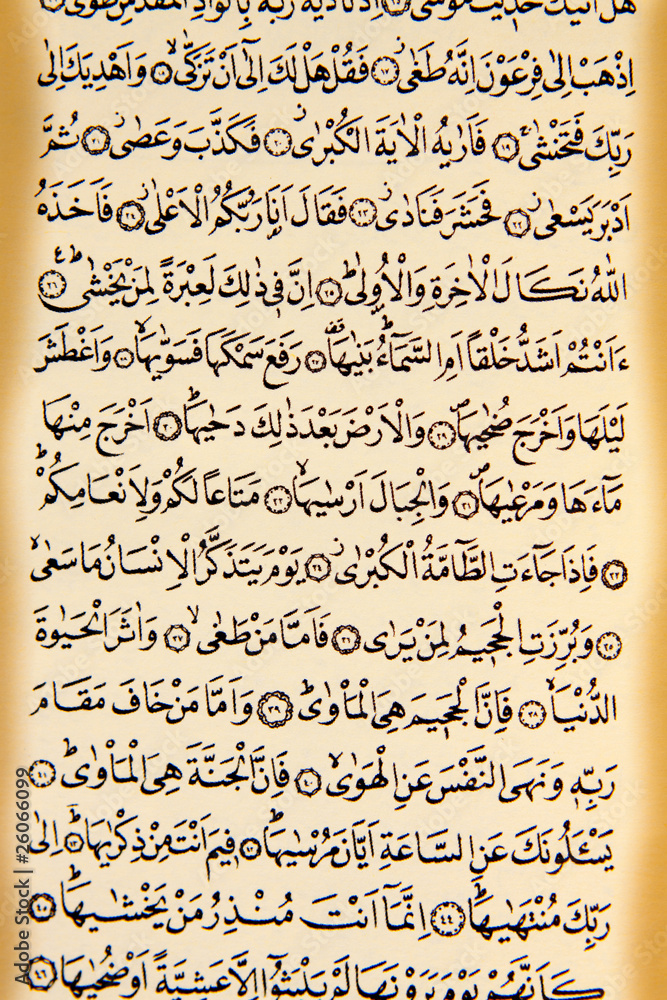 هَلْ اَتٰيكَ حَدٖيثُ مُوسٰى ﴿١٥﴾ اِذْ نَادٰيهُ رَبُّهُ بِالْوَادِ الْمُقَدَّسِ طُوًى ﴿١٦﴾
اِذْهَبْ اِلٰى فِرْعَوْنَ اِنَّهُ طَغٰى ﴿١٧﴾ فَقُلْ هَلْ لَكَ اِلٰٓى اَنْ تَزَكّٰى ﴿١٨﴾ وَاَهْدِيَكَ اِلٰى
رَبِّكَ فَتَخْشٰى ﴿١٩﴾ فَاَرٰيهُ الْاٰيَةَ الْكُبْرٰى ﴿٢٠﴾ فَكَذَّبَ وَعَصٰى ﴿٢١﴾ ثُمَّ
اَدْبَرَ يَسْعٰى ﴿٢٢﴾ فَحَشَرَ فَنَادٰى ﴿٢٣﴾ فَقَالَ اَنَا۬ رَبُّكُمُ الْاَعْلٰى ﴿٢٤﴾ فَاَخَذَهُ
اللّٰهُ نَكَالَ الْاٰخِرَةِ وَالْاُو۫لٰى ﴿٢٥﴾ اِنَّ فٖى ذٰلِكَ لَعِبْرَةً لِمَنْ يَخْشٰى ﴿٢٦﴾
ءَاَنْتُمْ اَشَدُّ خَلْقًا اَمِ السَّمَٓاءُ بَنٰيهَا ﴿٢٧﴾ رَفَعَ سَمْكَهَا فَسَوّٰيهَا ﴿٢٨﴾ وَاَغْطَشَ
لَيْلَهَا وَاَخْرَجَ ضُحٰيهَا ﴿٢٩﴾ وَالْاَرْضَ بَعْدَ ذٰلِكَ دَحٰيهَا ﴿٣٠﴾ اَخْرَجَ مِنْهَا
مَٓاءَهَا وَمَرْعٰيهَا ﴿٣١﴾ وَالْجِبَالَ اَرْسٰيهَا ﴿٣٢﴾ مَتَاعًا لَكُمْ وَلِاَنْعَامِكُمْ
﴿٣٣﴾ فَاِذَا جَٓاءَتِ الطَّٓامَّةُ الْكُبْرٰى ﴿٣٤﴾ يَوْمَ يَتَذَكَّرُ الْاِنْسَانُ مَا سَعٰى
﴿٣٥﴾ وَبُرِّزَتِ الْجَحٖيمُ لِمَنْ يَرٰى ﴿٣٦﴾ فَاَمَّا مَنْ طَغٰى ﴿٣٧﴾ وَاٰثَرَ الْحَيٰوةَ
الدُّنْيَا ﴿٣٨﴾ فَاِنَّ الْجَحٖيمَ هِىَ الْمَاْوٰى ﴿٣٩﴾ وَاَمَّا مَنْ خَافَ مَقَامَ
رَبِّهٖ وَنَهَى النَّفْسَ عَنِ الْهَوٰى ﴿٤٠﴾ فَاِنَّ الْجَنَّةَ هِىَ الْمَاْوٰى ﴿٤١﴾
يَسْـَٔلُونَكَ عَنِ السَّاعَةِ اَيَّانَ مُرْسٰيهَا ﴿٤٢﴾ فٖيمَ اَنْتَ مِنْ ذِكْرٰيهَا ﴿٤٣﴾ اِلٰى
رَبِّكَ مُنْتَهٰيهَا ﴿٤٤﴾ اِنَّمَٓا اَنْتَ مُنْذِرُ مَنْ يَخْشٰيهَا ﴿٤٥﴾
كَاَنَّهُمْ يَوْمَ يَرَوْنَهَا لَمْ يَلْبَثُٓوا اِلَّا عَشِيَّةً اَوْ ضُحٰيهَا ﴿٤٦﴾
Adobe Stock | #26066099